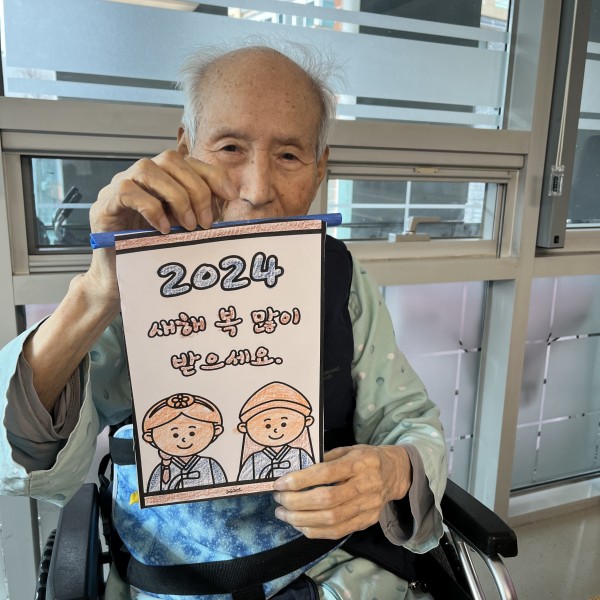 2024
새해 복 많이
받으세요.